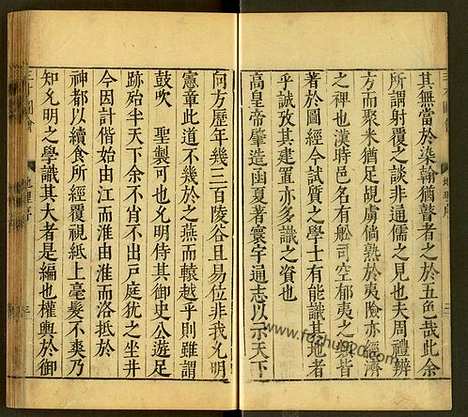 其無當於柒翰猶瞽者之於五色哉此余
所謂射覆之談非通儒之見也夫周禮辨
方而聚米猶足覘虜倘熟於夷險亦經濟
之裨也漢時邑名有船司空郁夷之類皆
著於圖經今試質之學士有能識其地者
乎誠攷其建置亦多識之資也
高皇帝肇造函夏著寰宇通志以示天下
向方歷年幾三百陵谷且易位非我允明
憲章此道不幾於之燕而轅越乎則雖謂
鼓吹 聖製可也允明侍其御史公遊足
跡殆半天下余不肖不出戶庭猶之坐井
今因計偕始由江而淮由淮而洛抵於
神都以續食所經覆視紙上毫髮不爽乃
知允明之學識其大者是編也權輿於御
三才圖會
地理序